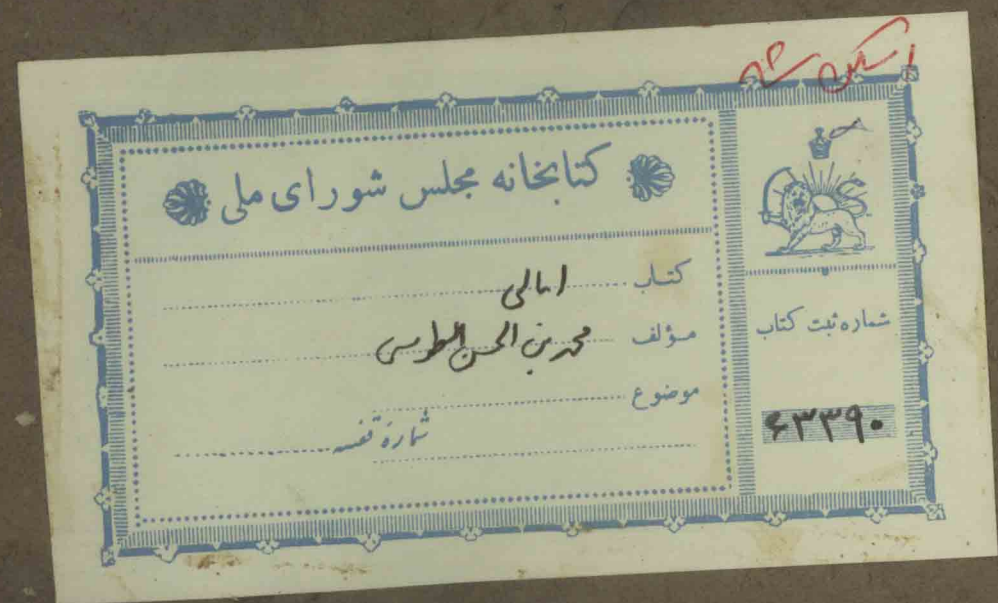 اسکن شد
کتابخانه مجلس شورای ملی
کتاب امالی
مؤلف محمد بن الحسن الطوسی
موضوع
شماره قفسه
شماره ثبت کتاب
۶۳۳۹۰